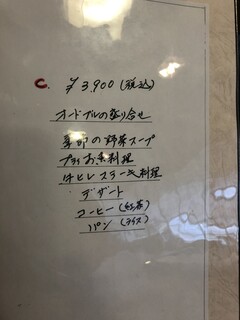 C. ¥3,900(税込)
オードブルの盛り合せ
季節の野菜スープ
お魚料理
牛ヒレステーキ料理
デザート
コーヒー(紅茶)
パン(ライス)